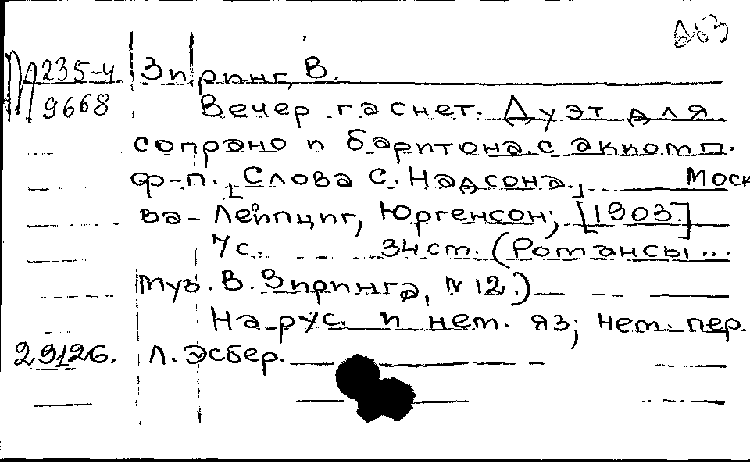 М 235-4 Зиринг, В.
9668 Вечер гаснет. Дуэт для
сопрано и баритона с аккомп.
ф-п. [Слова С. Надсона.] Моск
ва-Лейпциг, Юргенсон, [1903.]
7 с. 34 ст. (Романсы ...
муз. В. Зиринга, № 12.)
На рус. и нем. яз; нем. пер.
29126. Л. Эсбер.